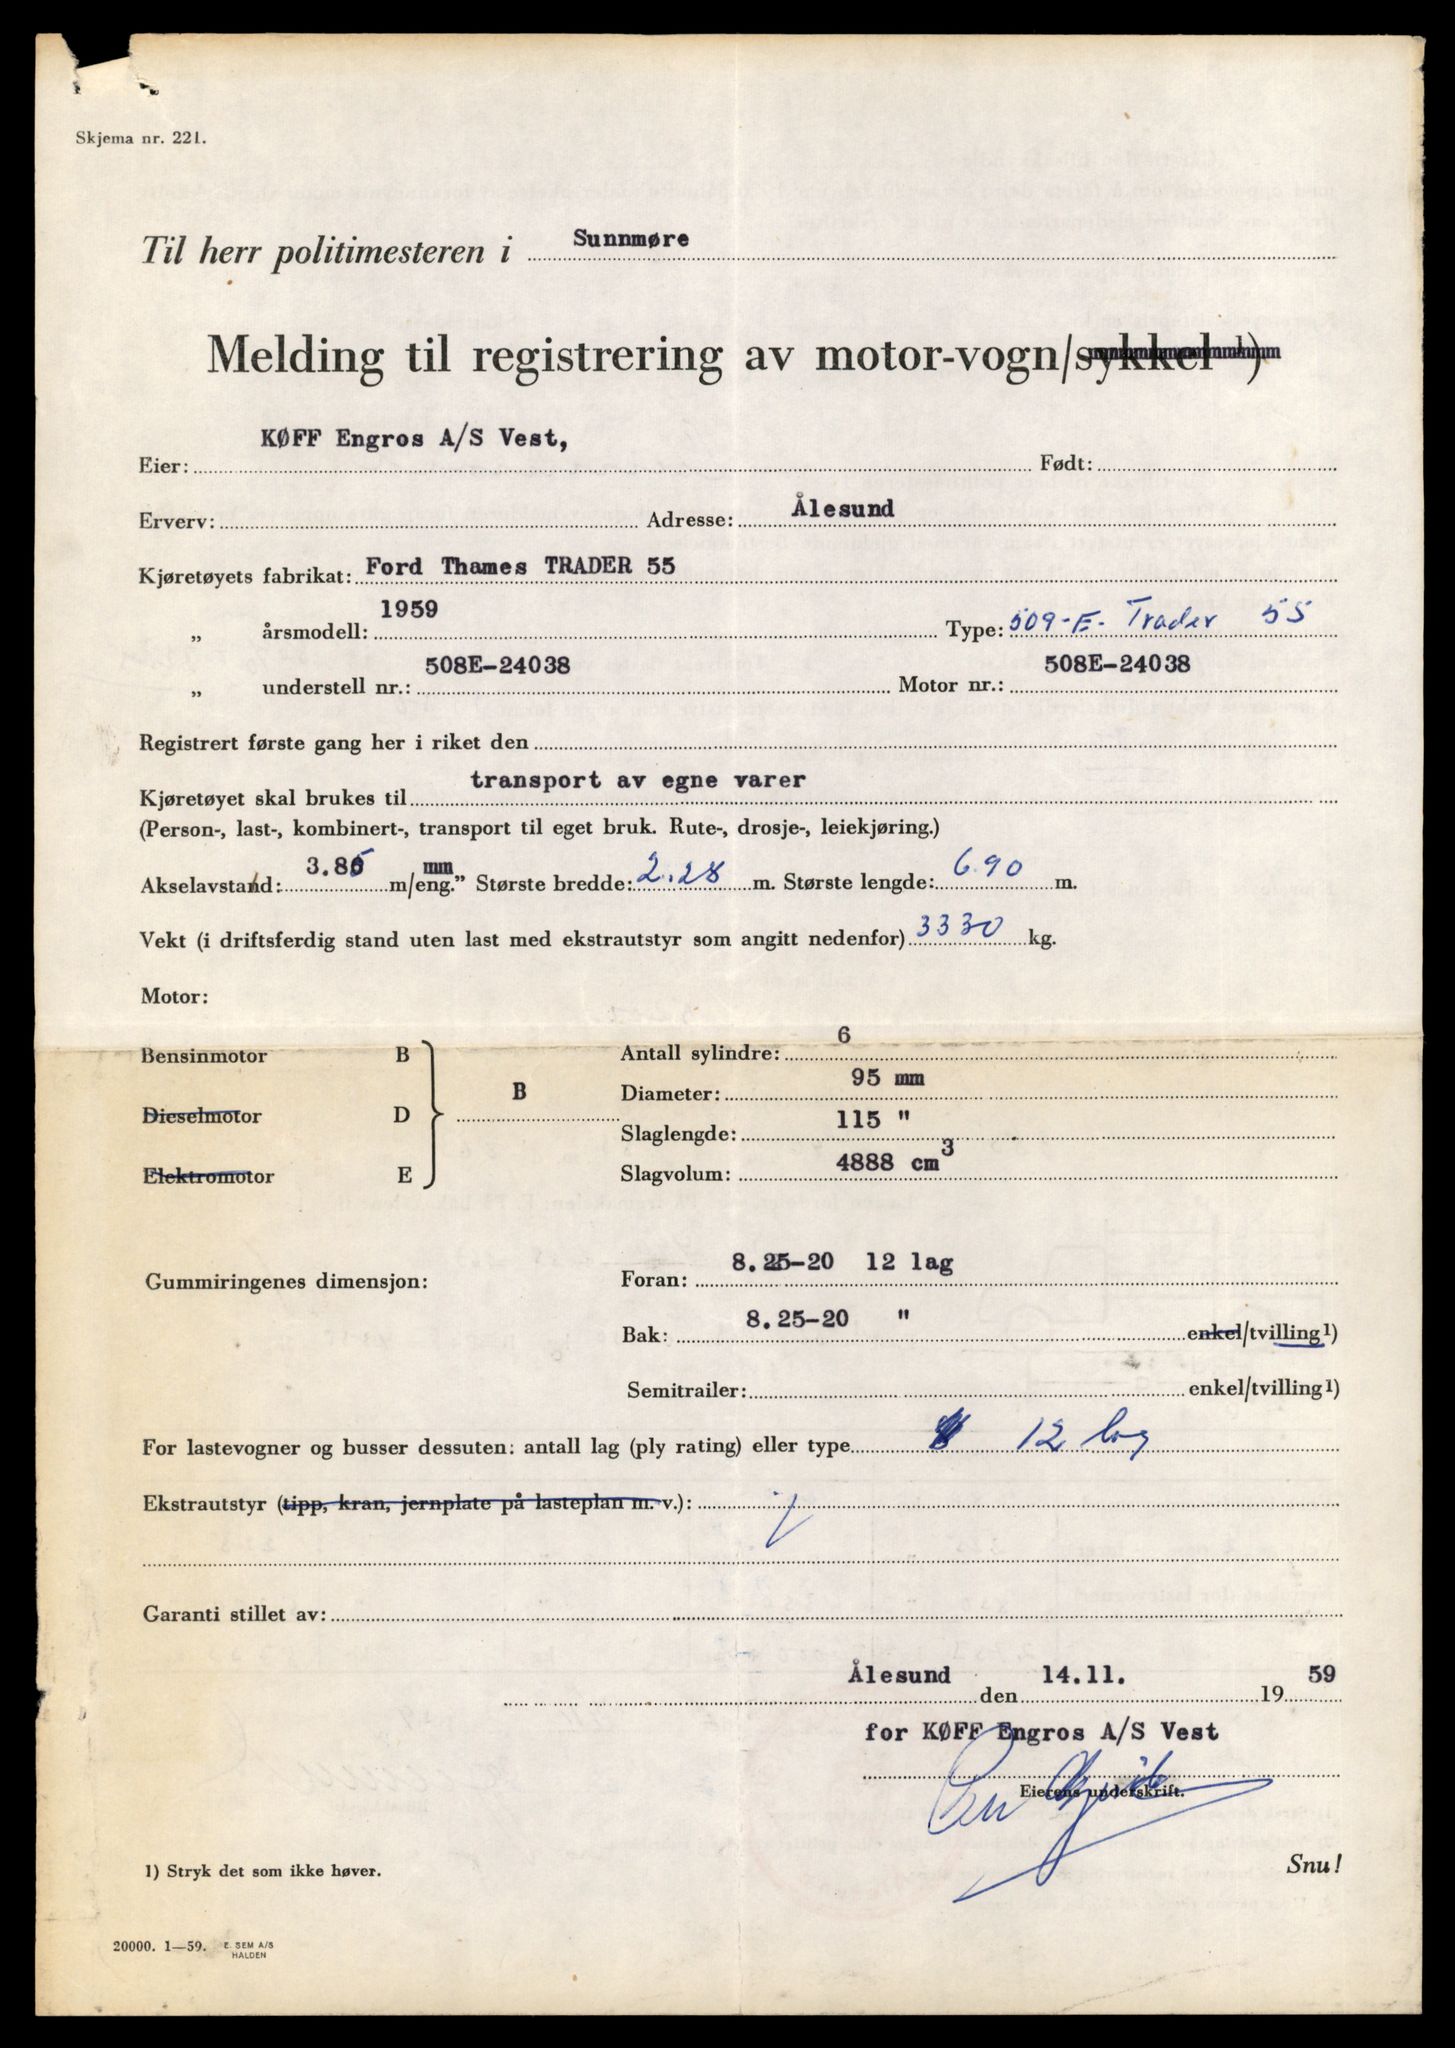 Skjema nr. 221.
Til herr politimesteren i Sunnmøre
Melding til registrering av motor-vogn/sykkel 1)
Eier: KØFF Engros A/S Vest, Født:
Erverv: Adresse: Ålesund
Kjøretøyets fabrikat: Ford Thames TRADER 55
„ årsmodell: 1959 Type: 509-E- Trader 55
„ understell nr.: 508E-24038 Motor nr.: 508E-24038
Registrert første gang her i riket den
Kjøretøyet skal brukes til transport av egne varer
(Person-, last-, kombinert-, transport til eget bruk. Rute-, drosje-, leiekjøring.)
Akselavstand: 3.85 m/eng.” mm Største bredde: 2.28 m. Største lengde: 6.90 m.
Vekt (i driftsferdig stand uten last med ekstrautstyr som angitt nedenfor) 3330 kg.
Motor:
Bensinmotor B Antall sylindre: 6
Diameter: 95 mm
Dieselmotor D B
Slaglengde: 115 "
Elektromotor E Slagvolum: 4888 cm3
Gummiringenes dimensjon: Foran: 8.25-20 12 lag
Bak: 8.25-20 " enkel/tvilling1)
Semitrailer: enkel/tvilling1)
For lastevogner og busser dessuten: antall lag (ply rating) eller type 12 lag
Ekstrautstyr (tipp, kran, jernplate på lasteplan m. v.):
Garanti stillet av:
Ålesund den 14.11. 19 59
for KØFF Engros A/S Vest
Eierens underskrift.
1) Stryk det som ikke høver. Snu!
20000. 1—59. E. SEM A/S
HALDEN